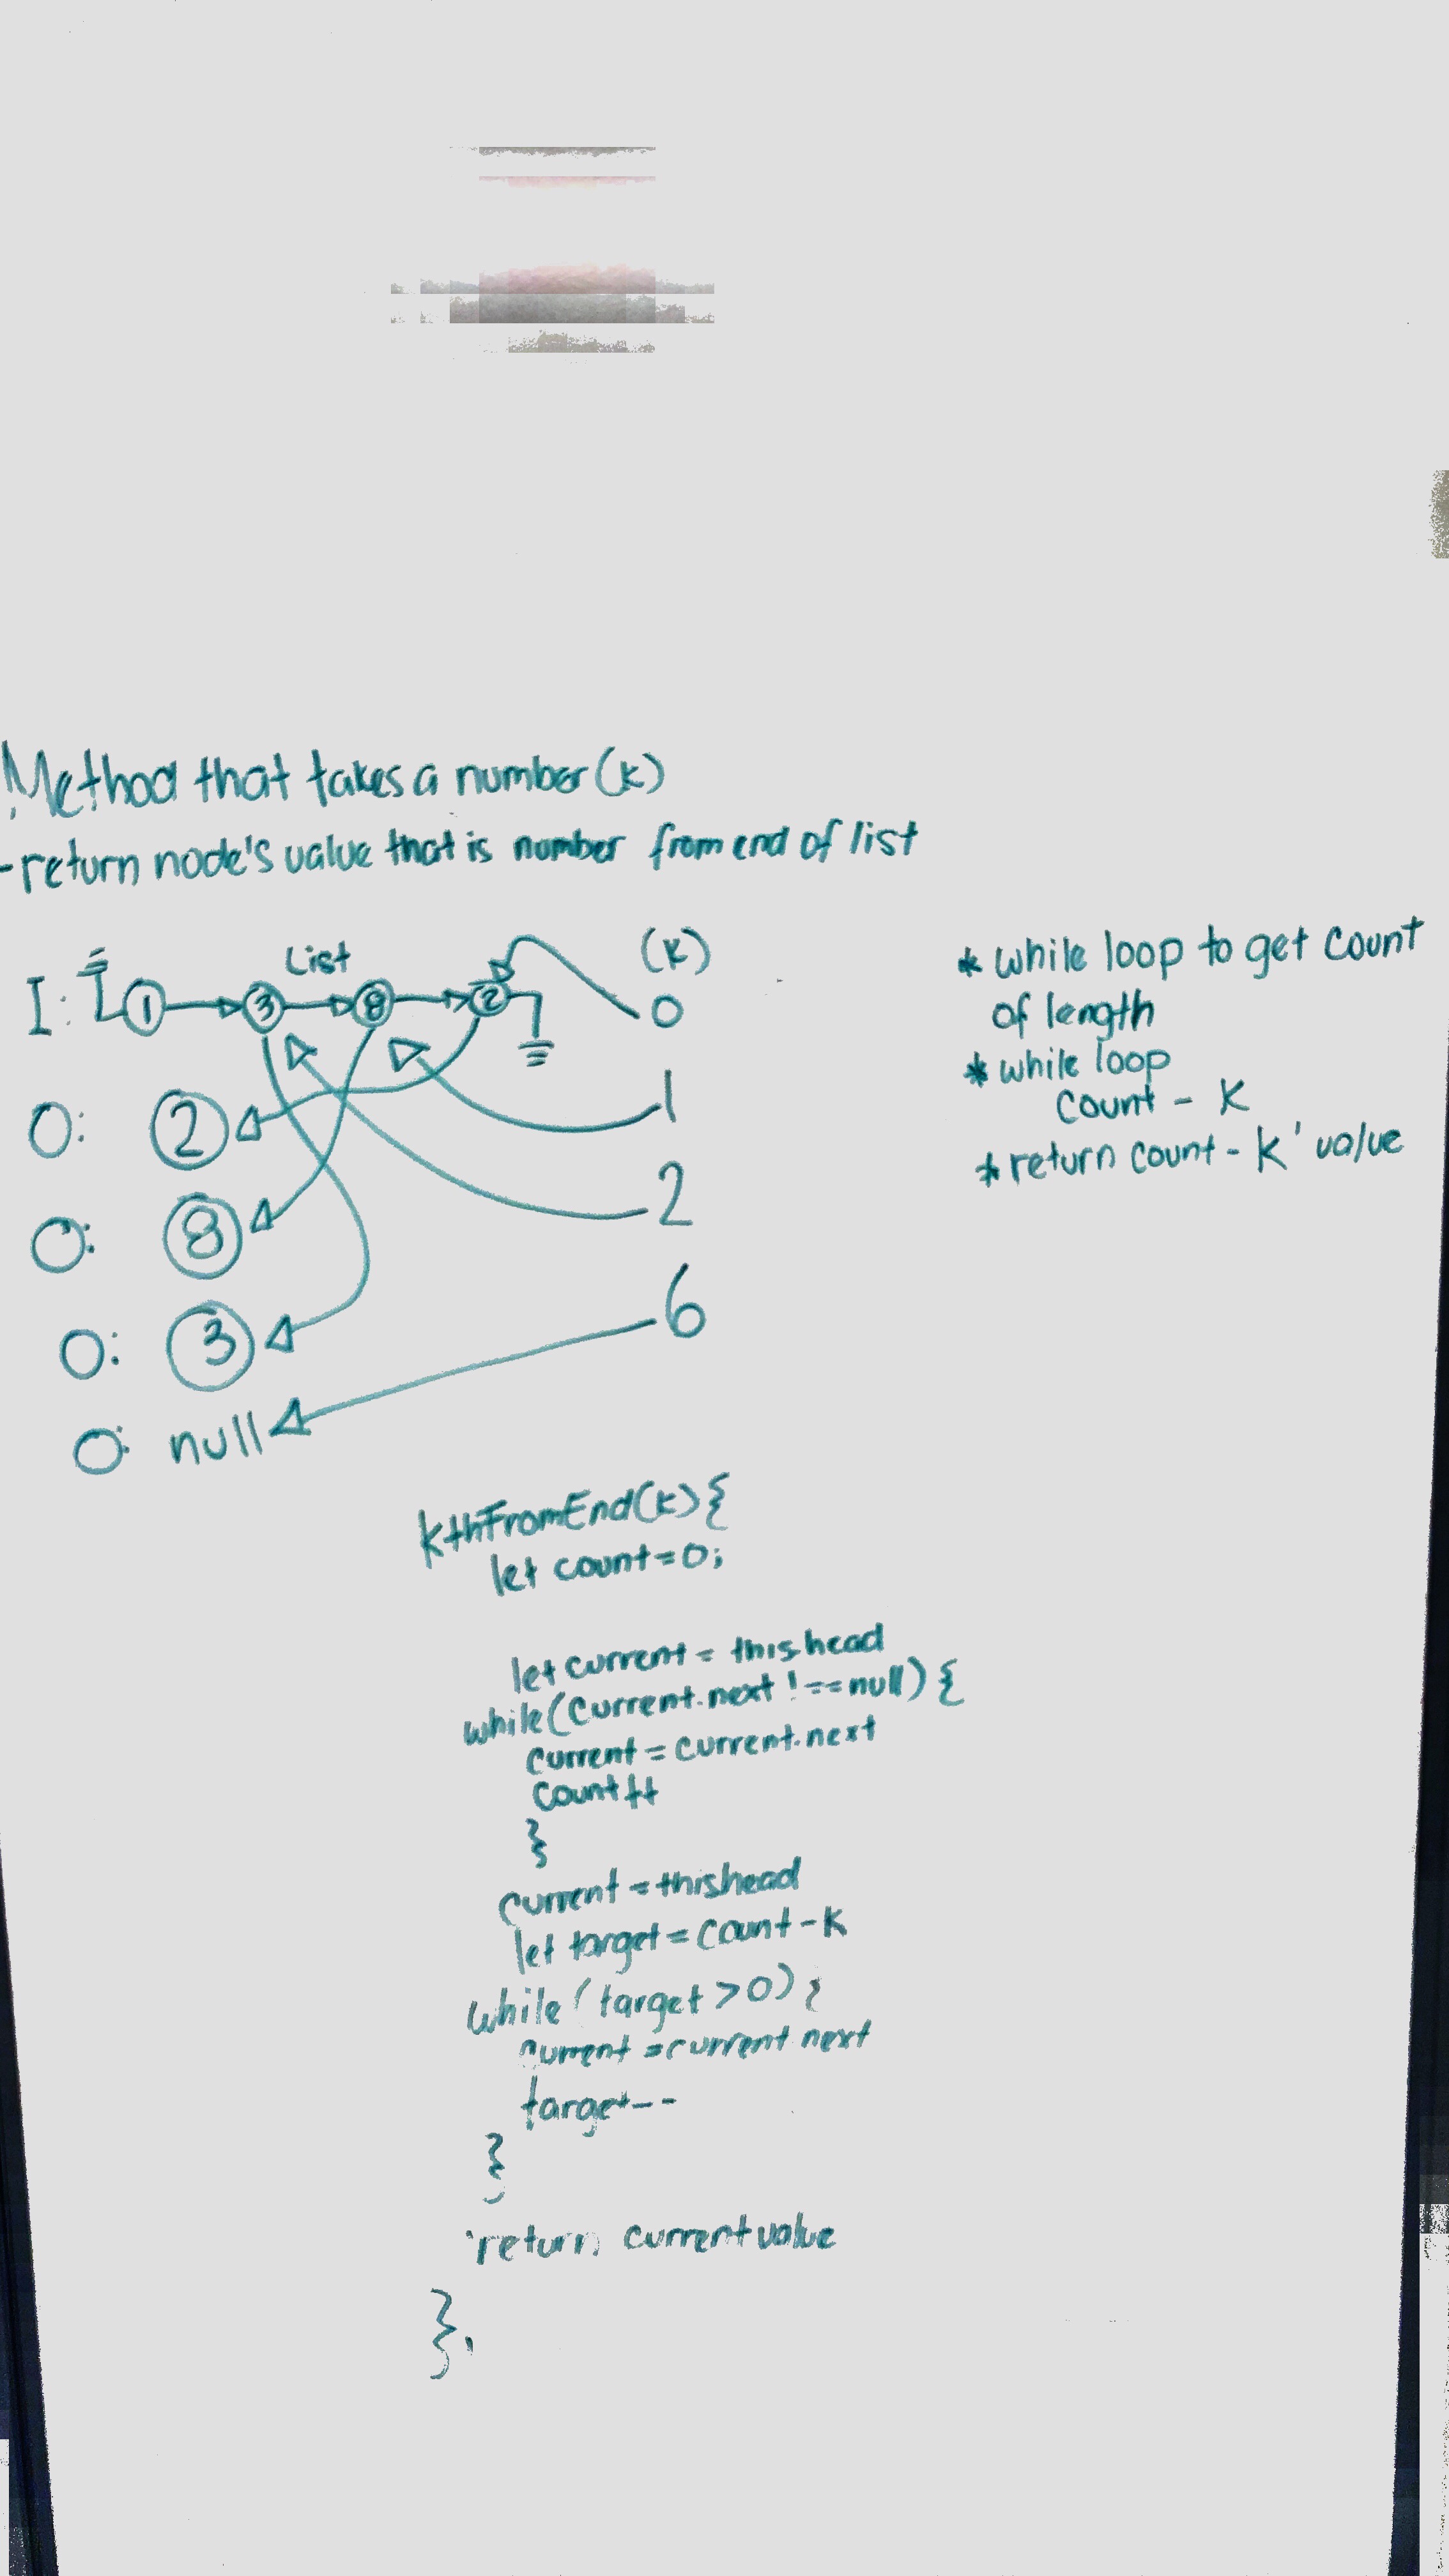 Method that takes a number (k)
-return node's value that is number from end of list
List
(k)
I: 1 3 8 2
0
O: 2
1
O: 8
2
O: 3
6
O: null
* while loop to get count
of length
* while loop
count - k
* return count - k' value
kthFromEnd(k){
let count=0;
let current = this.head
while(current.next !==null){
current = current.next
count++
}
current = this.head
let target = count-k
while(target>0){
current = current.next
target--
}
return current value
},